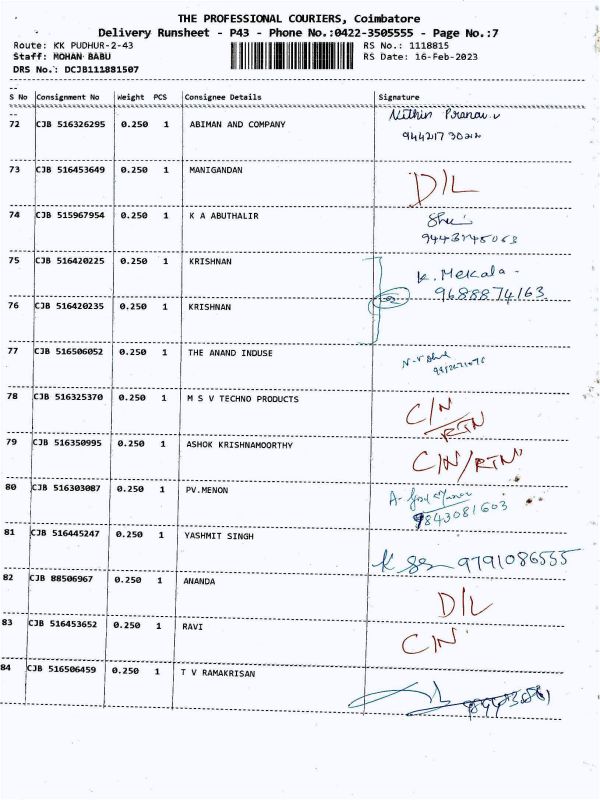 THE PROFESSIONAL COURIERS, Coimbatore
Delivery Runsheet - P43 - Phone No.:0422-3505555 - Page No.:7
Route: KK PUDHUR-2-43 RS No.: 1118815
Staff: MOHAN BABU RS Date: 16-Feb-2023
DRS No.: DCJB111881507
S No Consignment No Weight PCS Consignee Details Signature
72 CJB 516326295 0.250 1 ABIMAN AND COMPANY Nithin Pranav. v
73 CJB 516453649 0.250 1 MANIGANDAN D/L
74 CJB 515967954 0.250 1 K A ABUTHALIR
75 CJB 516420225 0.250 1 KRISHNAN K. Mekala -
9688874163
76 CJB 516420235 0.250 1 KRISHNAN
77 CJB 516506052 0.250 1 THE ANAND INDUSE
78 CJB 516325370 0.250 1 M S V TECHNO PRODUCTS C/N
RTN
79 CJB 516350995 0.250 1 ASHOK KRISHNAMOORTHY C/N/RTN
80 CJB 516303087 0.250 1 PV.MENON
9843081603
81 CJB 516445247 0.250 1 YASHMIT SINGH
9791086555
82 CJB 88506967 0.250 1 ANANDA D/L
83 CJB 516453652 0.250 1 RAVI C/N
84 CJB 516506459 0.250 1 T V RAMAKRISAN